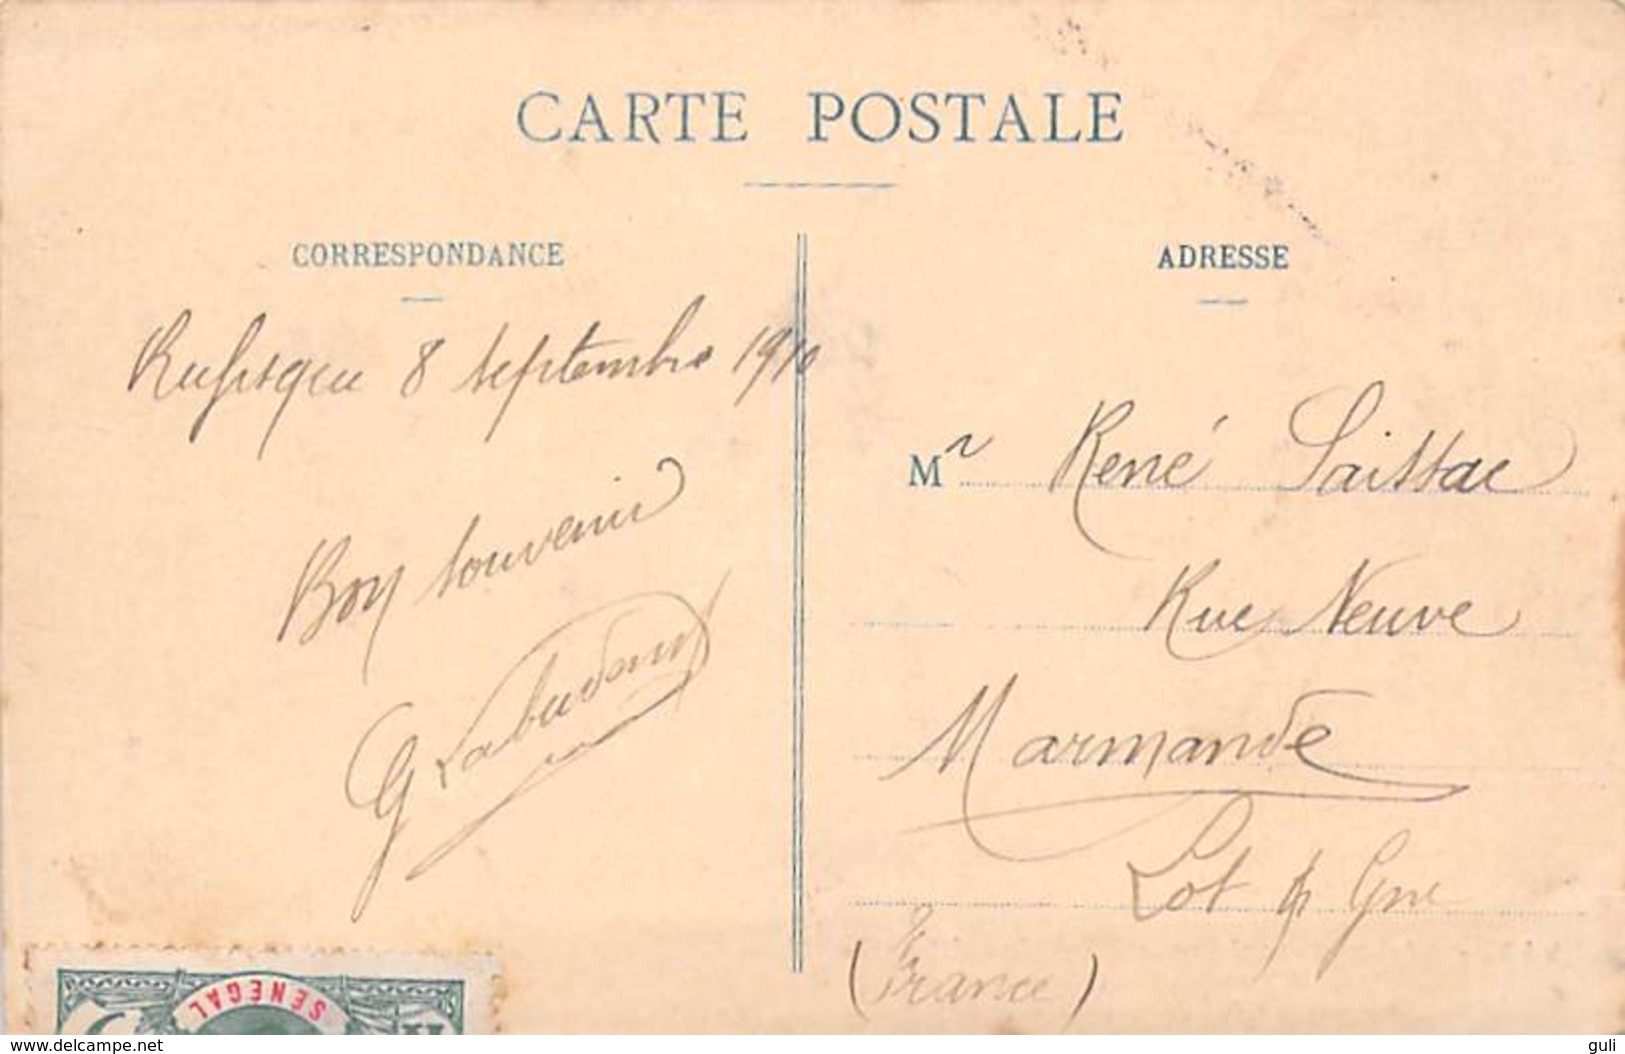 CARTE POSTALE
CORRESPONDANCE
Rufisque 8 septembre 1910
Bon souvenir
ADRESSE
Mr René Saissac
Rue Neuve
Marmande
Lot & Gne
(France)
SENEGAL
www.delcampe.net
guli